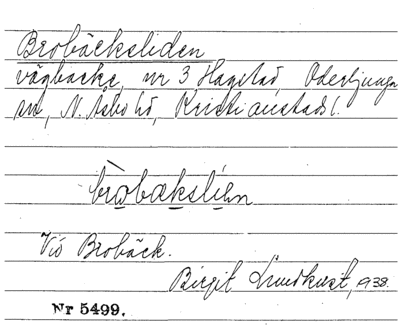 Brobäcksliden
vägbacke, nr 3 Hagstad Oderljunga
sn, N. Åsbo hd, Kristianstads l.
bròbækslíen
Vid Brobäck.
Birgit Lundkvist, 1938.
Nr 5499.